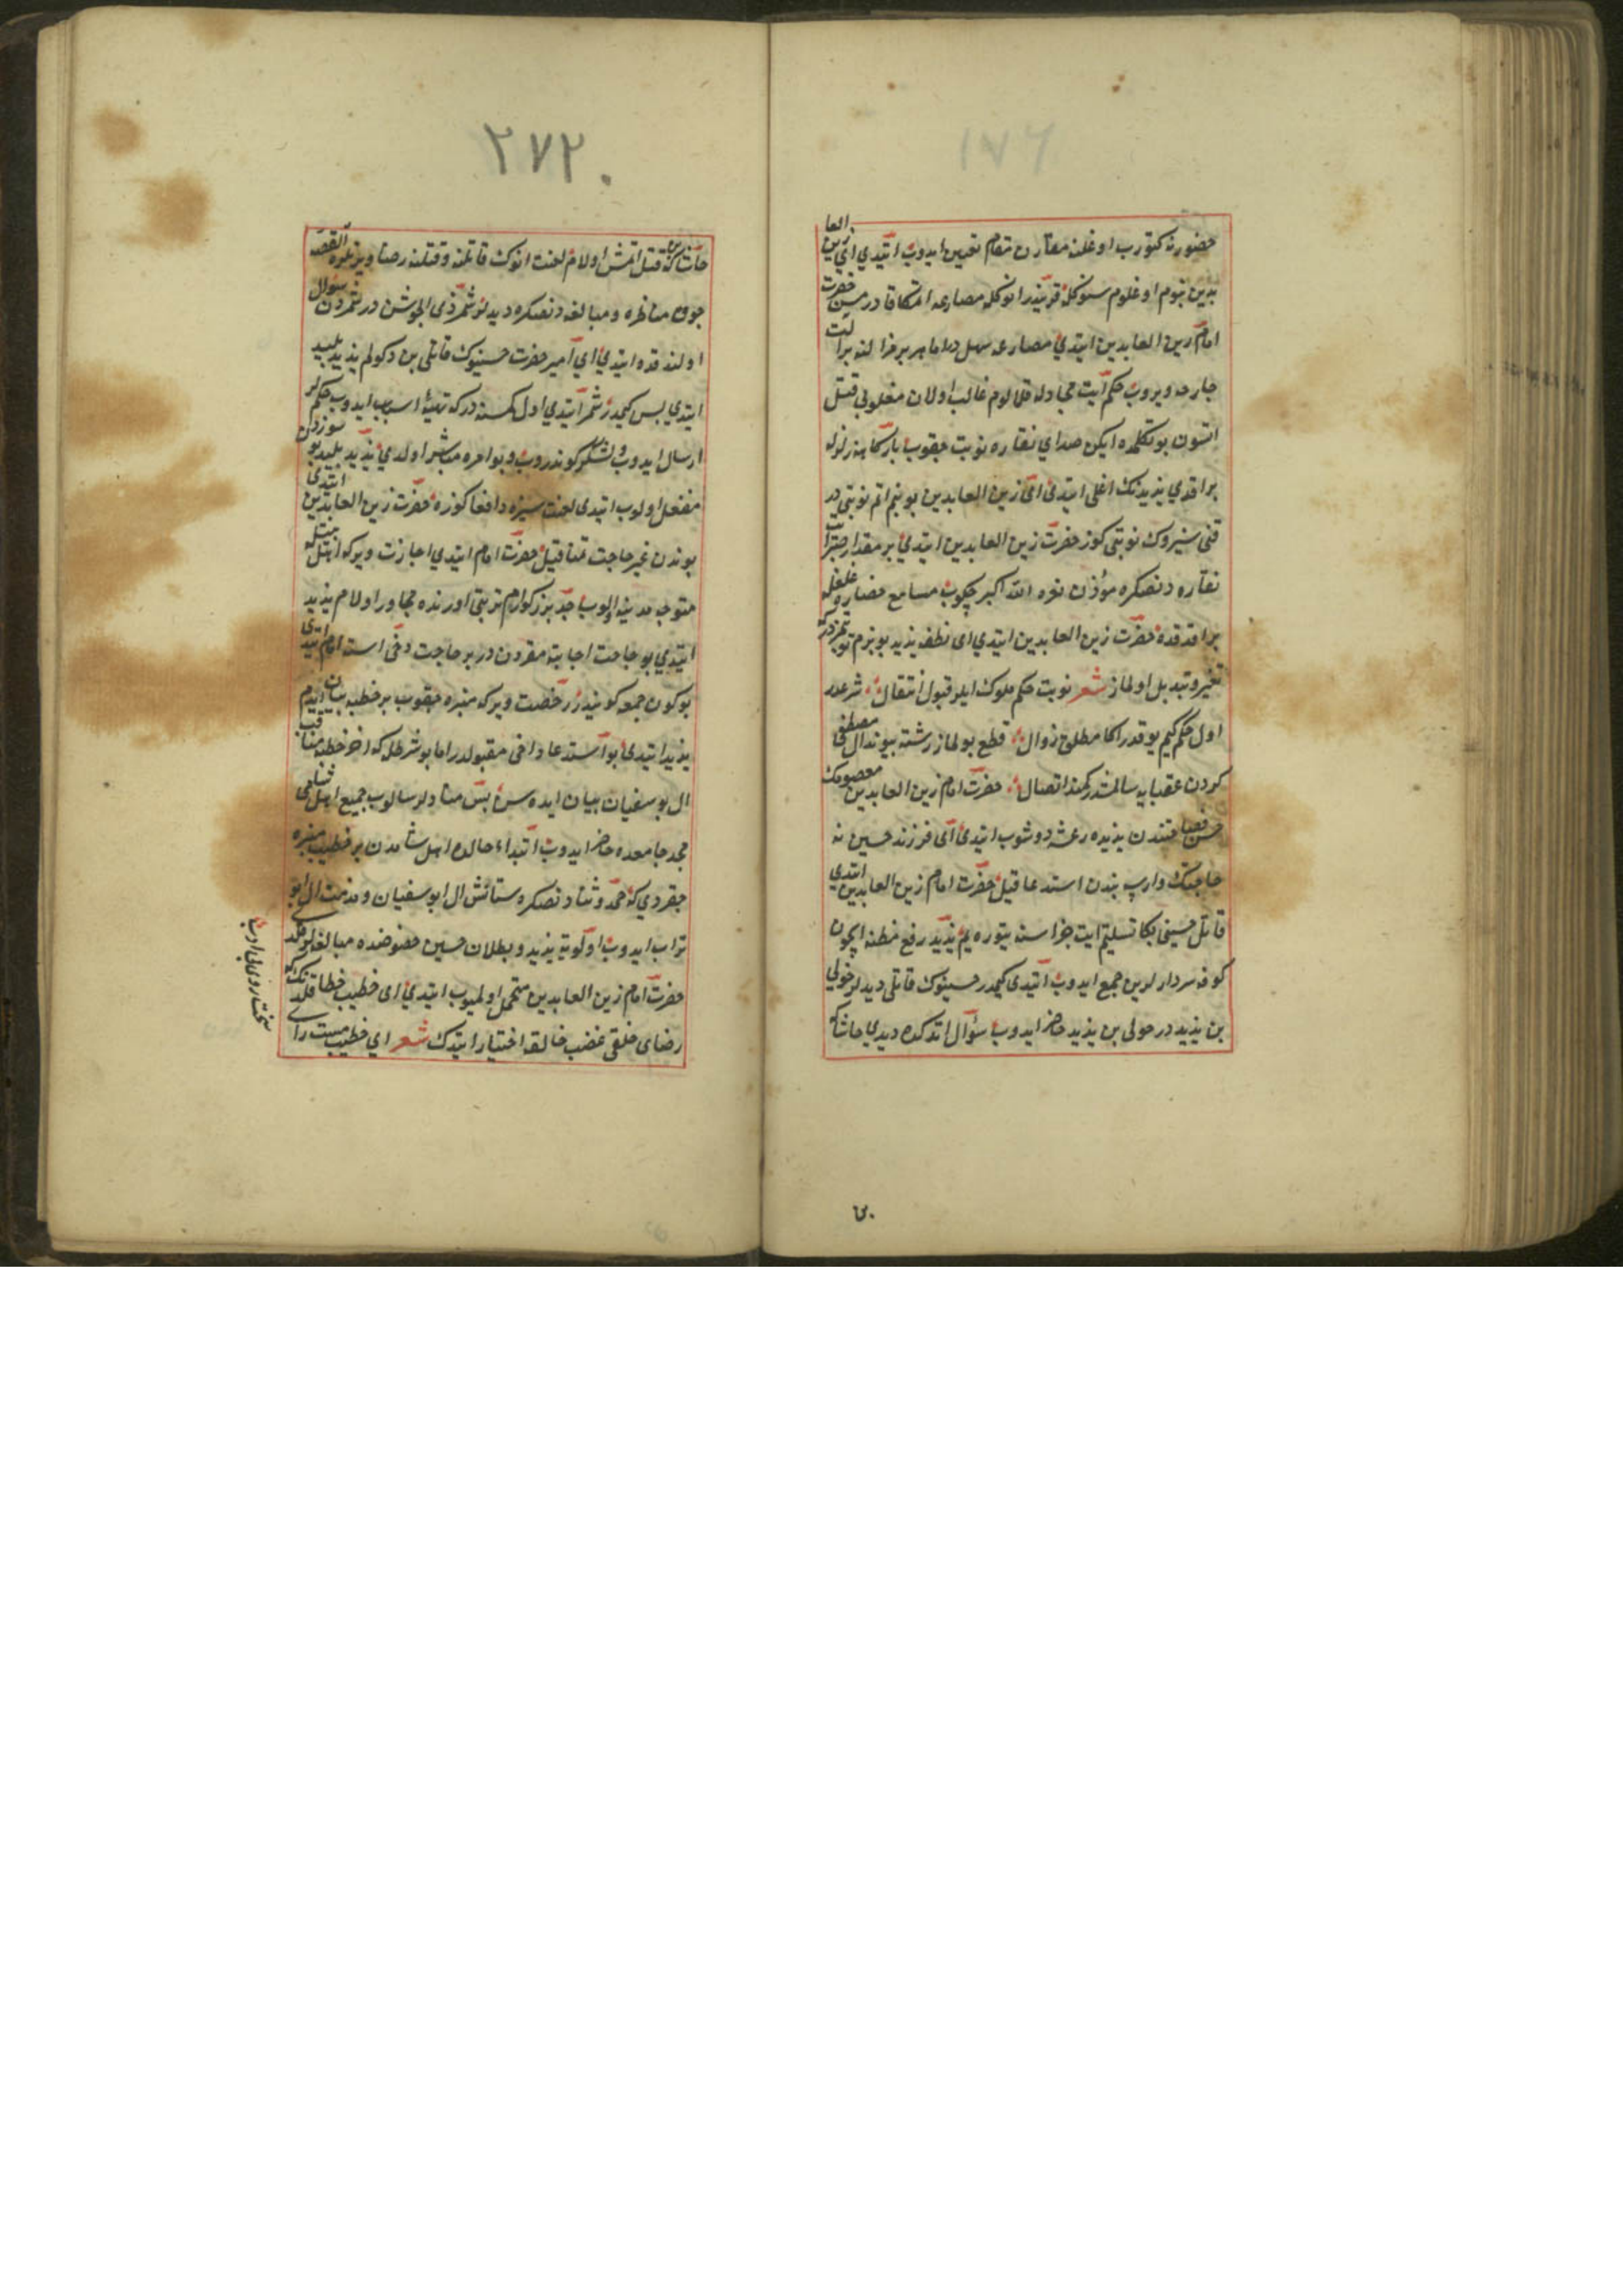 ١٧٦
حضورنه كتورب اوغلنه مقارن مقام تعيين ايدوب ايتدي اي زين العا
بدين بنوم اوغلوم سنوكله قريندر انوكله مصارعه اتمكا قادر مسن حضرت
امام زين العابدين ايتدي مصارعه سهل در اما هر بريمزا النه بر الت
جارحه ويروب حكم ايت مجادله قلالوم غالب اولان مغلوبي قتل
اتسون بو تكلمده ايكن صداي نقاره نوبت چقوب باركاهنه زلزله
براقدي يزيدنك اغلي ايتدي اي زين العابدين بو بنم اتم نوبتي در
قني سنيروك نوبتي كوز حضرت زين العابدين ايتدي بر مقدار صبر ايت
نقاره دنصكره مؤذن نعره الله اكبر چكوب مسامع حضاره غلغله
براقدقده حضرت زين العابدين ايتدي اي نطفه يزيد بو بزم نوبتمزدركه
تغير وتبديل اولماز شعر نوبت حكم ملوك ايلر قبول انتقال شرعدر
اول حكم كيم يوقدر اكا مطلق زوال قطع بولماز رشته پيوند ال مصطفى
كردن عقبايه سالمشدر كمند اتصال حضرت امام زين العابدين معصومك
حسن فصاحتندن يزيده رعشه دوشوب ايتدي اي فرزند حسين نه
حاجتك وار بندن استدعا قيل حضرت امام زين العابدين ايتدي
قاتل حسيني بكا تسليم ايت جزاسنه يتوره يم يزيد رفع مظنه ايچون
كوفه سردارلرين جمع ايدوب ايتدي كيمدر حسينوك قاتلي ديديلر خولي
بن يزيد در خولي بن يزيد حاضر ايدوب سؤال اتدكده ديدي حاشاكه
٢٧٢
حاشاكه بن قتل اتمش اولام لعنت انوك قاتلنه وقتلنه رضا ويرنلره القصه
چوق مناظره ومبالغه دنصكره ديديلر شمر ذي الجوشن در شمردن سؤال
اولندقده ايتدي اي امير حضرت حسينوك قاتلي بن دكولم يزيد پليد
ايتدي بس كيمدر شمر ايتدي اول كمسنه دركه تهيه اسباب ايدوب حكملر
ارسال ايدوب ولشكر كوندروب وبو امره مباشر اولدي يزيد پليد بو سوزدن
منفعل اولوب ايتدي لعنت سيزه دافعا كوزه حضرت زين العابدين ايتدي
بوندن غير حاجت تمنا قيل حضرت امام ايتدي اجازت ويركه اهل بيتله
متوجه مدينه اولوب جد بزركوارم تربتي اورنده مجاور اولام يزيد
ايتدي بو حاجت اجابته مقرون در بر حاجت دخي استه امام ايتدي
بوكون جمعه كونيدر رخصت ويركه منبره چقوب بر خطبه بيان ايديم
يزيد ايتدي بو استدعا داخي مقبولدر اما بو شرطله كه اخر خطبه مناقب
ال بو سفيان بيان ايده سن بس منادلر سالوب جميع اهل شامي
مجد جامعده حاضر ايدوب ابتداء حالده اهل شامدن بر خطيب منبره
چقرديكه حمد وثنا دنصكره ستائش ال ابو سفيان ومذمت ال ابو
تراب ايدوب اولويه يزيد وبطلان حسين خصوصنده مبالغه لر قلدي
حضرت امام زين العابدين متحمل اولميوب ايتدي اي خطيب خطا قلدنك كه
رضاي خلقي غضب خالقه اختيار ايتدك شعر اي خطيب سست راي
سخت روي بي ادب